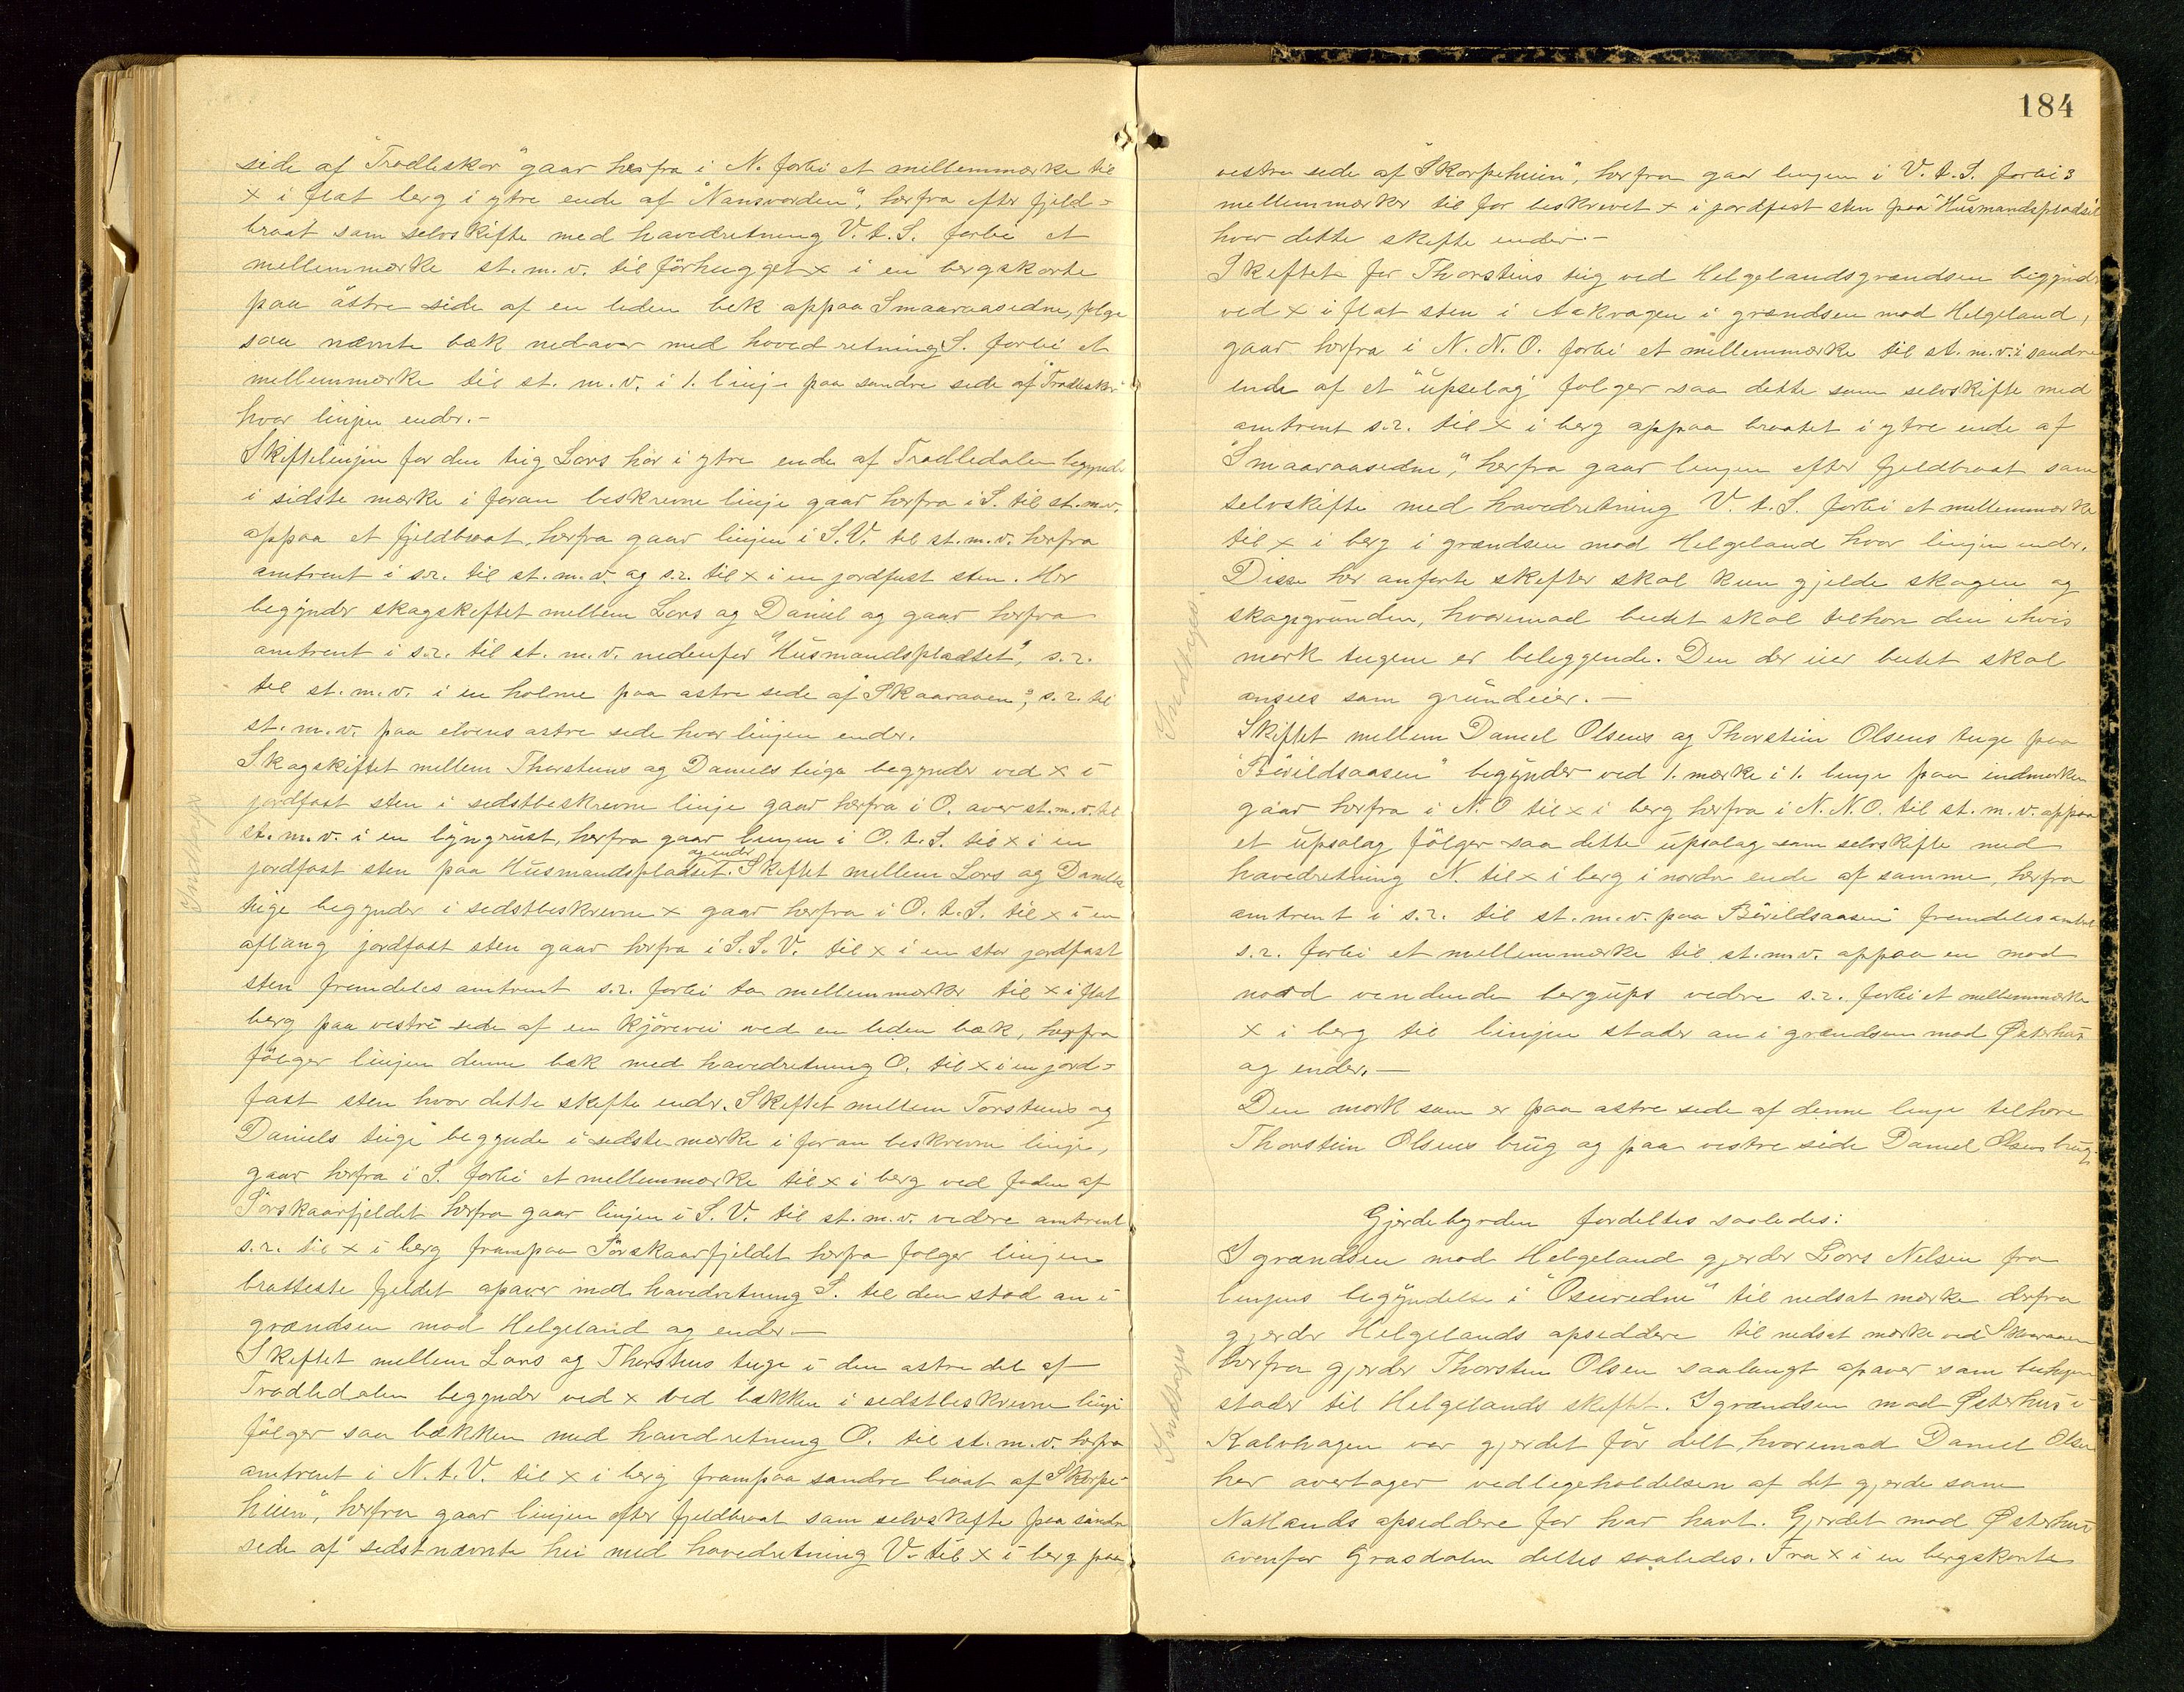 side af "Tradleskor" gaar herfra i N. forbi et mellemmærke til
x i flat berg i ytre ende af "Nansvorden", herfra efter fjeld-
braat som selvskifte med hovedretning V.t.S. forbi et
mellemmærke st.m.v. til förhugget x i en bergskorte
paa östre side af en liden bek oppaa Smaaraasedne, følge
saa nævnte bæk nedover med hovedretning S. forbi et
mellemmærke til st. m. v. i 1. linje paa søndre side af "Tradleskor"
hvor linjen ender.-
Skiftelinjen for den teig Lars har i ytre ende af Tradledalen begynder
i sidste mærke i foran beskrevne linje gaar herfra i S. til st.m.v.
oppaa et fjeldbraat, herfra gaar linjen i S.V. til st.m.v. herfra
omtrent i s.r. til st.m.v. og s.r. til x i en jordfast sten. Her
begynder skogskiftet mellem Lars og Daniel og gaar herfra
omtrent i s.r. til st. m.v. nedenfor "Husmandspladset", s.r.
til st.m.v. i en holme paa østre side af "Skaaraaen", s.r. til
st.m.v. paa elvens østre side hvor linjen ender.
Skogskiftet mellem Thorsteins og Daniels teige begynder ved x i
jordfast sten i sidstbeskrevne linje gaar herfra i O. over st.m.v. til
st.m.v. i en lyngrust, herfra gaar linjen i O.t.S. til x i en
jordfast sten paa Husmandspladset og ender. Skiftet mellem Lars og Daniels
teige begynder i sidstbeskrevne x gaar herfra i O.t.S. til x i en
aflang jordfast sten gaar herfra i S.S.V. til x i en stor jordfast
sten fremdeles omtrent s.r. forbi to mellemmærker til x i flat
berg paa vestre side af en kjörevei ved en liden bæk, herfra
fölger linjen denne bæk med hovedretning O. til x i en jord-
fast sten hvor dette skifte ender. Skiftet mellem Torsteins og
Daniels teige begynde i sidste mærke i foran beskrevne linje,
gaar herfra i S. forbi et mellemmærke til x i berg ved foden af
Sörskaarfjeldet herfra gaar linjen i S.V. til st.m.v. videre omtrent
s.r. til x i berg frampaa Sörskaarfjeldet herfra følger linjen
bratteste fjeldet opover med hovedretning S. til den stød an i
grændsen mod Helgeland og ender.-
Skiftet mellem Lars og Thorsteins teige i den østre del af
Tradledalen begynder ved x ved bækken i sidstbeskrevne linje
fölger saa bækken med hovedretning O. til st.m.v. herfra
omtrent i N.t.V. til x i berg frampaa søndre braat af "Skorpe-
heien", herfra gaar linjen efter fjeldbraat som selvskifte paa söndre
side af sidstnævnte hei med hovedretning V. til x i berg paa
Indtages
184
vestre side af "Skorpeheien", herfra gaar linjen i V.t.S. forbi 3
mellemmærker til før beskrevet x i jordfast sten paa "Husmandspladset"
hvor dette skifte ender.-
Skiftet for Thorsteins teig ved Helgelandsgrændsen begynder
ved x i flat sten i Aakrogen i grændsen mod Helgeland,
gaar herfra i N.N.O. forbi et mellemmærke til st.m.v. i søndre
ende af et "upselag" følger saa dette som selvskifte med
omtrent s.r. til x i berg oppaa braatet i ytre ende af
"Smaaraasedne", herfra gaar linjen efter fjeldbraat som
selvskifte med hovedretning V.t.S. forbi et mellemmærke
til x i berg i grændsen mod Helgeland hvor linjen ender.
Disse her anførte skifter skal kun gjelde skogen og
skoggrunden, hvorimod beitet skal tilhøre den i hvis
mark teigene er beliggende. Den der eier beitet skal
ansees som grundeier.-
Skiftet mellem Daniel Olsens og Thorstein Olsens teige paa
"Böeildsaasen" begynder ved 1. mærke i 1. linje paa indmarken
gaar herfra i N.O til x i berg herfra i N.N.O. til st.m.v. oppaa
et upsalag fölger saa dette upsalag som selvskifte med
hovedretning N. til x i berg i nordre ende af samme, herfra
omtrent i s.r. til st.m.v. paa Böeildsaasen fremdeles omtrent
s.r. forbi et mellemmærke til st.m.v. oppaa en mod
nord vendende bergups videre s.r. forbi et mellemmærke
x i berg til linjen støder an i grændsen mod Østerhus
og ender.-
Den mark som er paa østre side af denne linje tilhøre
Thorstein Olsens brug og paa vestre side Daniel Olsens brug.
Gjerdebyrden fordeltes saaledes:
I grændsen mod Helgeland gjerder Lars Nelsen fra
linjens begyndelse i "Oseuredne" til nedsat mærke derfra
gjerder Helgelands opsiddere til nedsat mærke ved Skaaraaen
herfra gjerder Thorstein Olsen saalangt opover som beitegen
støder til Helgelands skiftet. I grændsen mod Østerhus i
Kalvhagen var gjerdet för delt, hvorimod Daniel Olsen
her overtager vedligeholdelsen af det gjerde som
Natlands opsiddere før har havt. Gjerdet mod Østerhus
ovenfor Grasdalen deltes saaledes. Fra x i en bergskorte
Indtages
Indtages